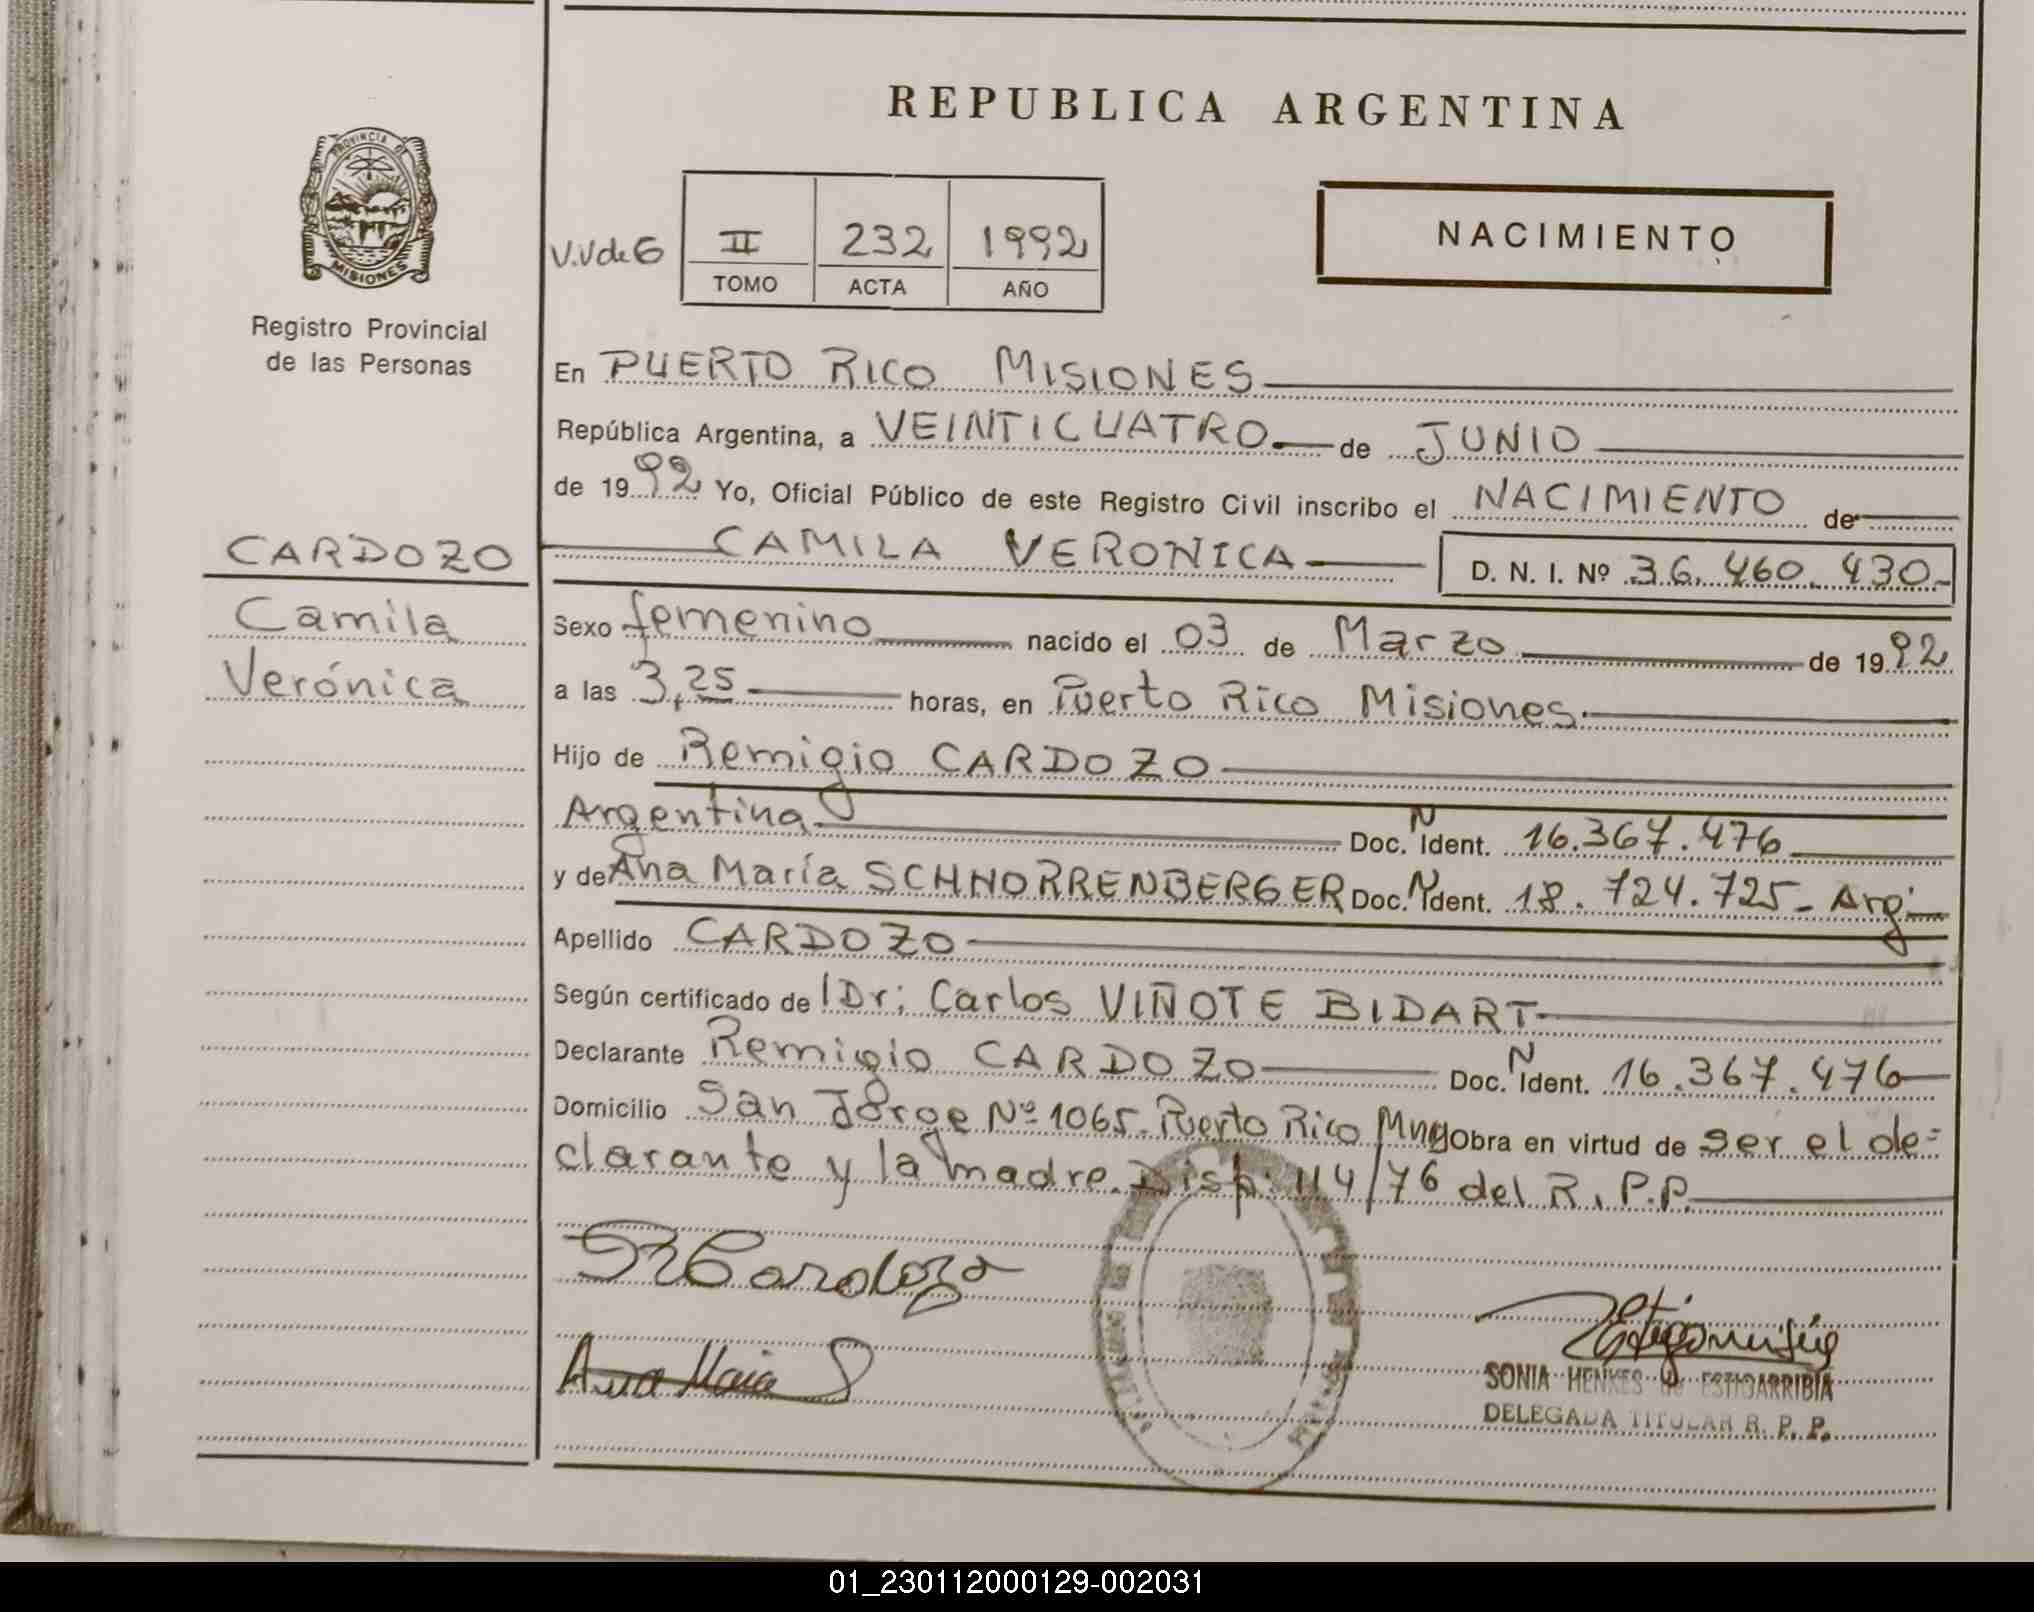 REPUBLICA ARGENTINA
PROVINCIA DE
MISIONES
Registro Provincial
de las Personas
V.V de G
II 232 1992
TOMO ACTA AÑO
NACIMIENTO
En PUERTO RICO MISIONES
República Argentina, a VEINTICUATRO de JUNIO
de 1992 Yo, Oficial Público de este Registro Civil inscribo el NACIMIENTO de
CARDOZO
Camila
Verónica
CAMILA VERONICA D. N. I. Nº 36.460.430.-
Sexo femenino nacido el 03 de Marzo de 1992
a las 3,25 horas, en Puerto Rico Misiones.
Hijo de Remigio CARDOZO
Argentina Doc. N Ident. 16.367.476
y de Ana María SCHNORRENBERGER Doc. N Ident. 18.724.725- Arg.
Apellido CARDOZO
Según certificado de Dr; Carlos VIÑOTE BIDART
Declarante Remigio CARDOZO Doc. N Ident. 16.367.476
Domicilio San Jorge Nº 1065. Puerto Rico Mnes Obra en virtud de ser el de=
clarante y la madre. Disp. 114/76 del R.P.P.
R Cardozo
Ana Maria S
SONIA HENKES de ESTIGARRIBIA
DELEGADA TITULAR R. P. P.
01_230112000129-002031